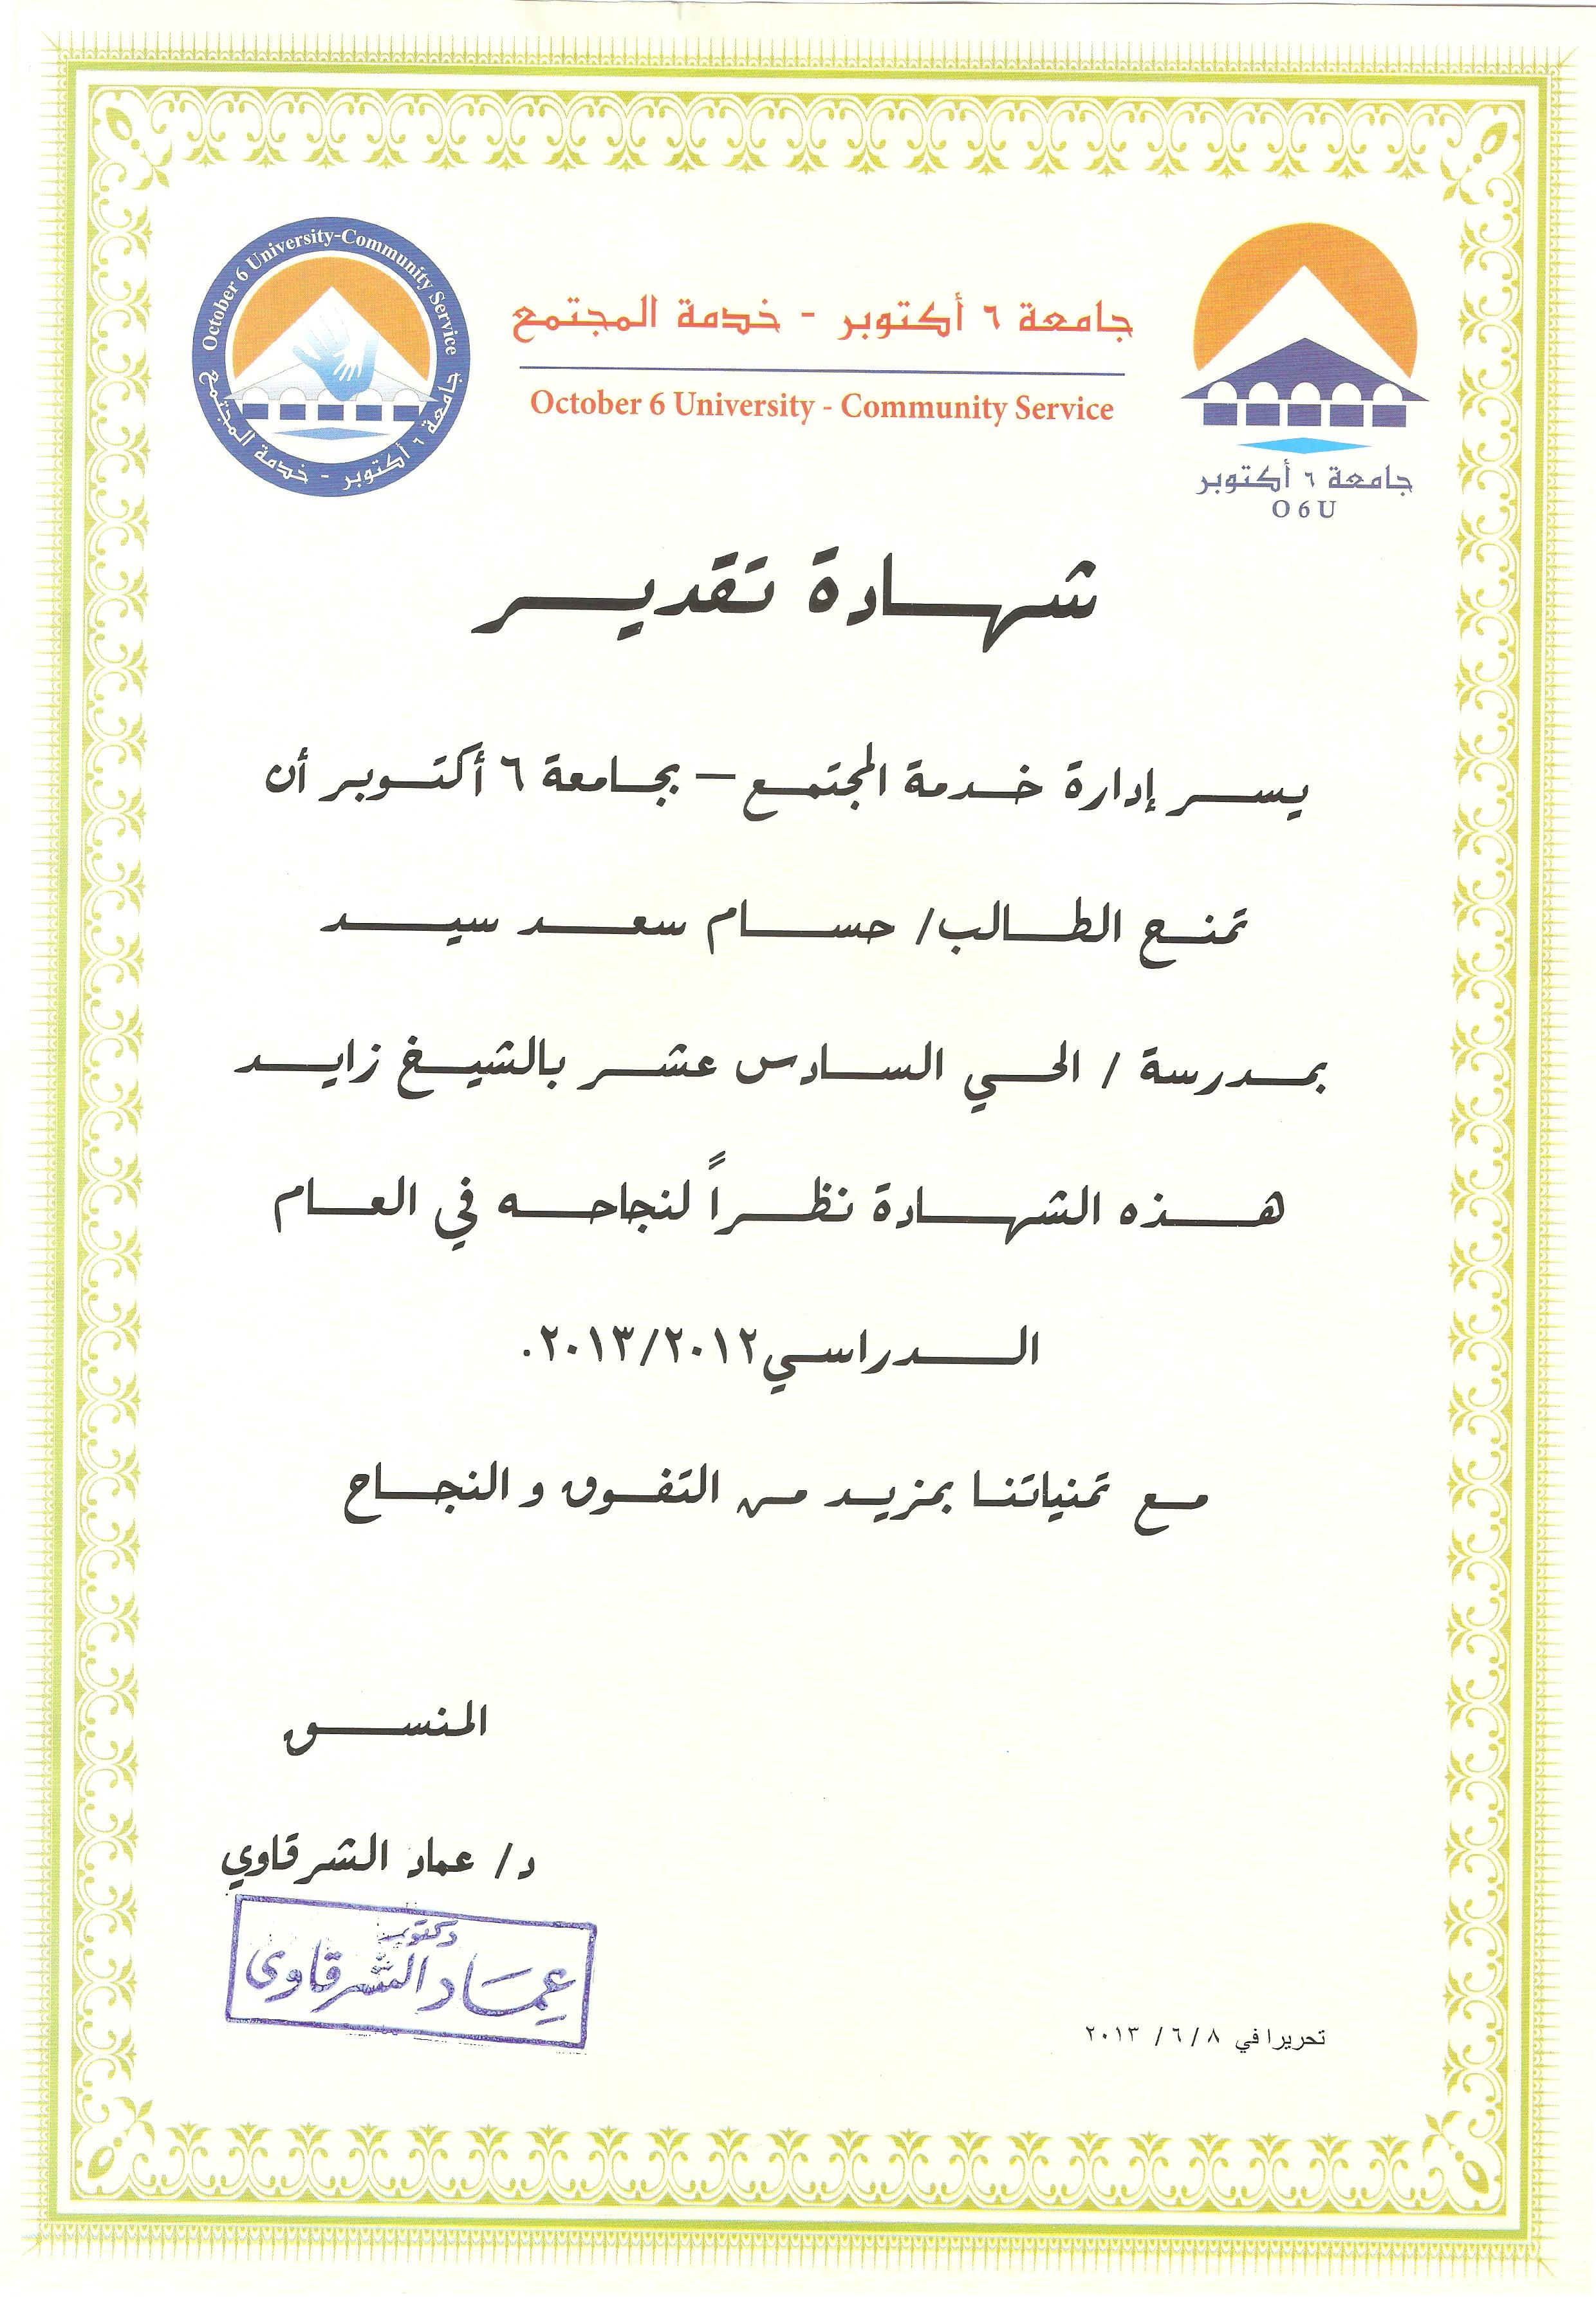 October 6 University-Community Service
جامعة ٦ أكتوبر - خدمة المجتمع
جامعة ٦ أكتوبر - خدمة المجتمع
October 6 University - Community Service
جامعة ٦ أكتوبر
O 6 U
شهادة تقدير
يسر إدارة خدمة المجتمع – بجامعة ٦ أكتوبر أن
تمنح الطالب/ حسام سعد سيد
بمدرسة / الحي السادس عشر بالشيخ زايد
هذه الشهادة نظراً لنجاحه في العام
الدراسي ٢٠١٣/٢٠١٢.
مع تمنياتنا بمزيد من التفوق و النجاح
المنسق
د/ عماد الشرقاوي
دكتور
عماد الشرقاوى
تحريرا في ٨ / ٦ / ٢٠١٣